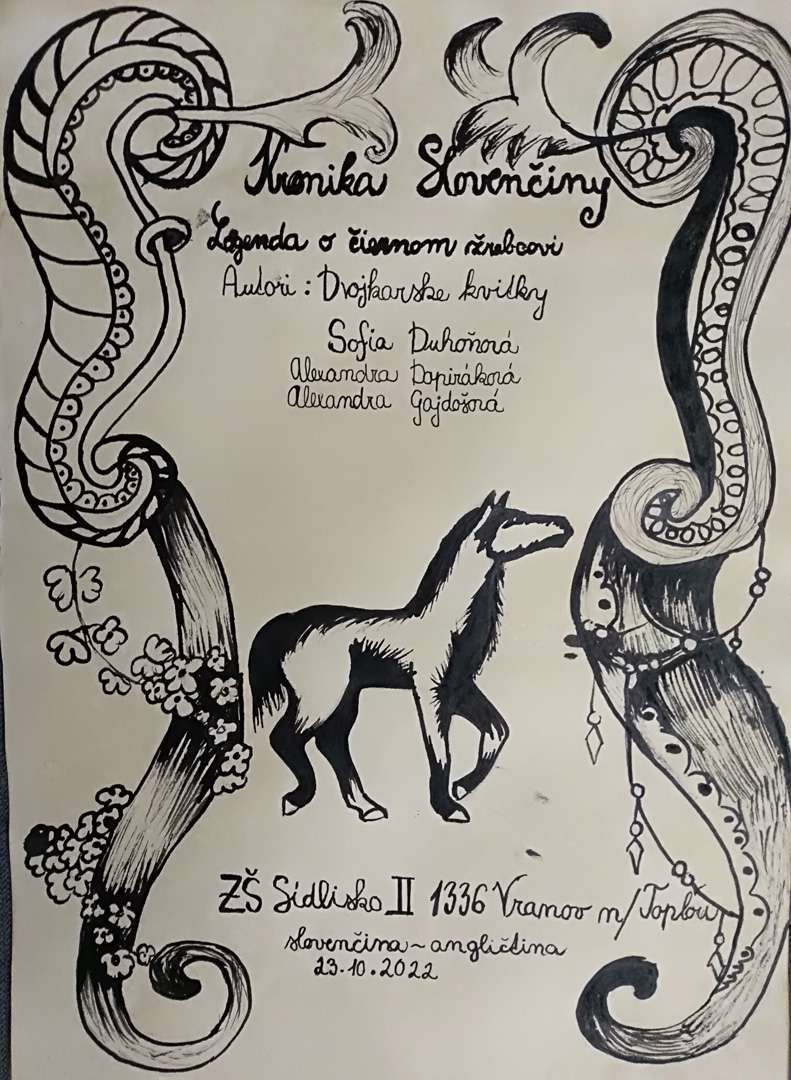 Kronika Slovenčiny
Legenda o čiernom žrebcovi
Autori : Dvojkarske kvitky
Sofia Duhoňová
Alexandra Dopiráková
Alexandra Gajdošová
ZŠ Sídlisko II 1336 Vranov n/Topľou
slovenčina ~ angličtina
23.10.2022